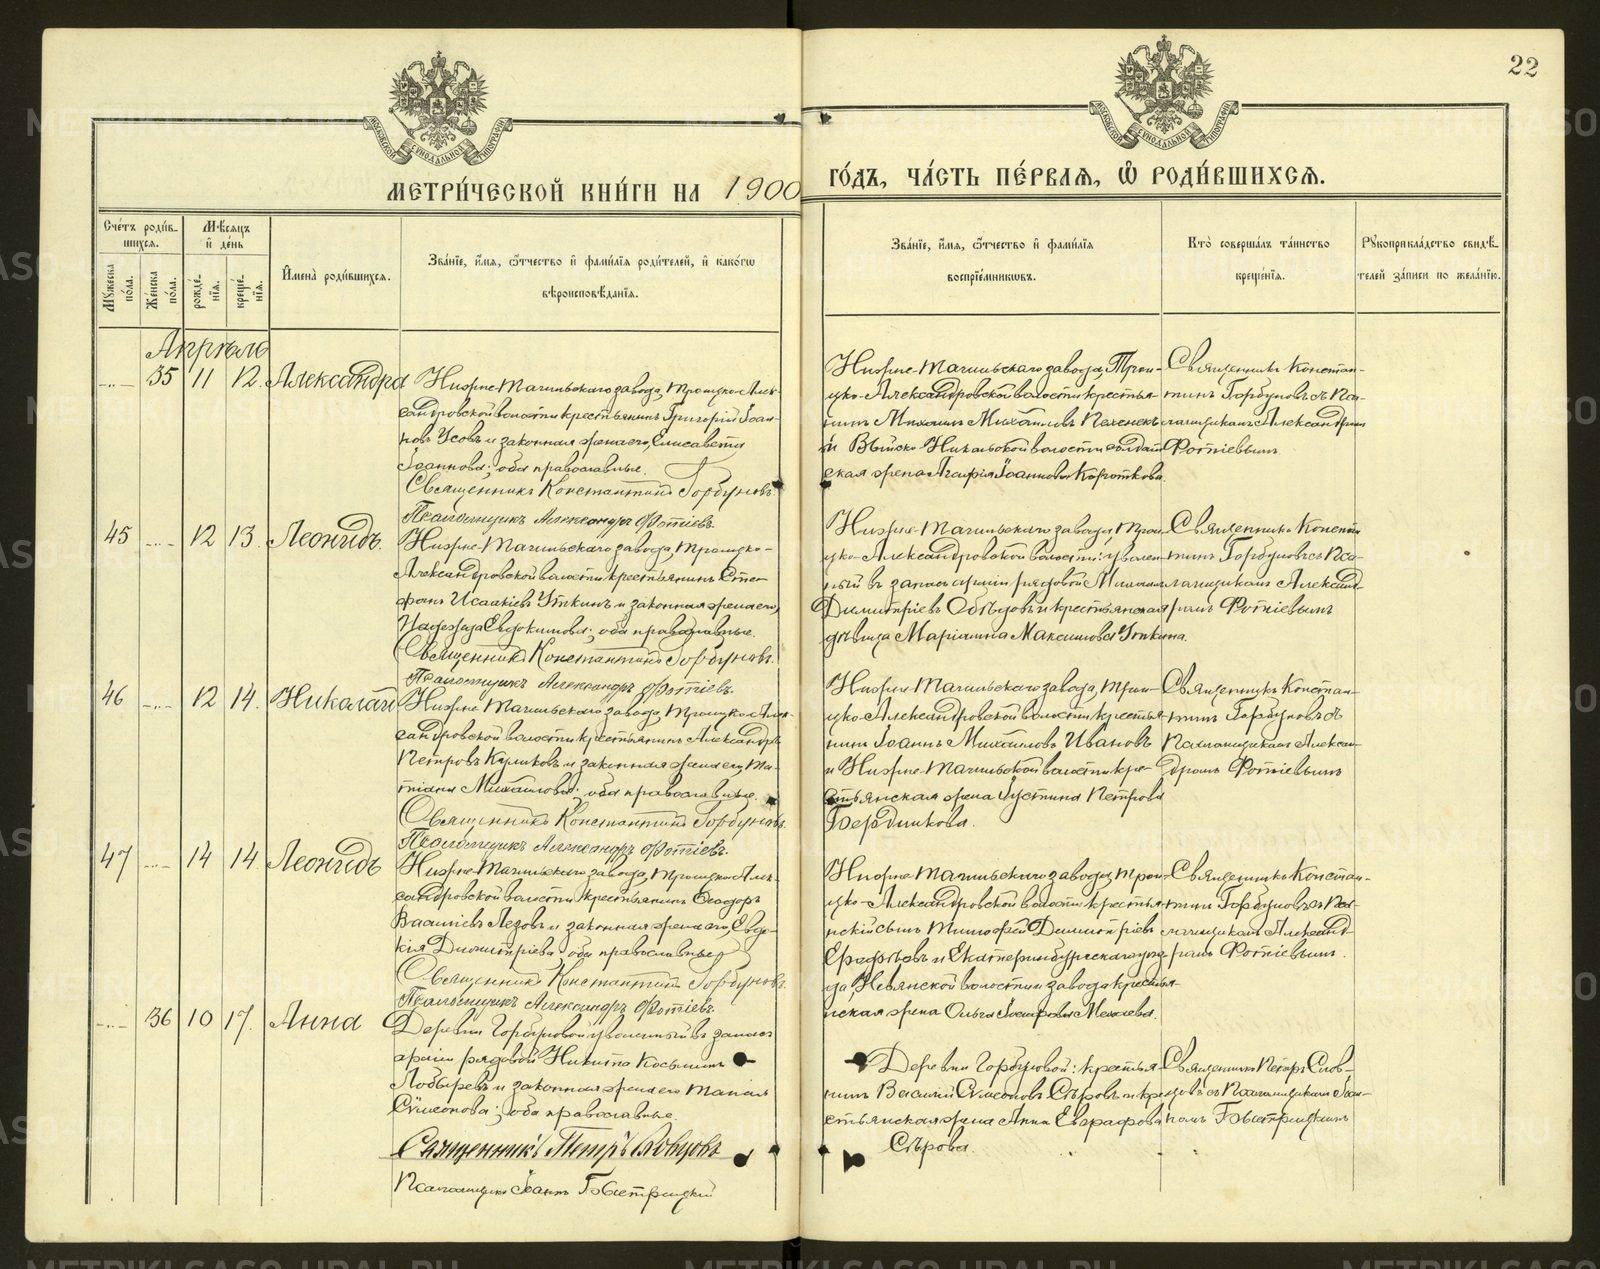 22
МЕТРИ́ЧЕСКОЙ КНИ́ГИ НА 1900
ГО́ДЪ, ЧА́СТЬ ПЕ́РВАѦ, Ѽ РОДИ́ВШИХСѦ.
Сче́тъ роди́в-
шихсѧ.
Мѣ́сѧцъ
и҆ де́нь
Мꙋ́жеска
по́ла.
Же́нска
по́ла.
рожде́-
нїѧ.
креще́-
нїѧ.
И҆мена̀ роди́вшихсѧ.
Зва́нїе, и҆́мѧ, ѻ҆́тчество и҆ фами́лїѧ роди́телей, и҆ како́гѡ
вѣроисповѣ́данїѧ.
Зва́нїе, и҆́мѧ, ѻ҆́тчество и҆ фами́лїѧ
воспрїе́мникѡвъ.
Кто̀ соверша́лъ та́инство
креще́нїѧ.
Рꙋкоприкла́дство свидѣ́-
телей за́писи по жела́нїю.
Апрѣль
35 11 12. Александра
Нижне-Тагильскаго завода, Троицко-Алек-
сандровской волости крестьянинъ Григорій Іоан-
новъ Усовъ и законная жена его, Елисавета
Іоаннова; оба православные.
Священникъ Константинъ Горбуновъ.
Псаломщикъ Александръ Фотіевъ.
Нижне-Тагильскаго завода, Трои-
цко-Александровской волости крестья-
нинъ Михаилъ Михайловъ
и Выйско-Никольской волости солдат-
ская жена Агафія Іоаннова Короткова.
Священникъ Констан-
тинъ Горбуновъ съ Пса-
ломщикомъ Александромъ
Фотіевымъ
45 12 13. Леонидъ.
Нижне-Тагильскаго завода, Троицко-
Александровской волости крестьянинъ Сте-
фанъ Исаакіевъ Уткинъ и законная жена его,
Надежда Евдокимова; оба православные.
Священникъ Константинъ Горбуновъ.
Псаломщикъ Александръ Фотіевъ.
Нижне-Тагильскаго завода, Трои-
цко-Александровской волости: уволен-
ный въ запасъ арміи рядовой Михаилъ
Димитріевъ Обѣдовъ и крестьянская
дѣвица Маріанна Максимова Уткина.
Священникъ Констан-
тинъ Горбуновъ съ Пса-
ломщикомъ Александ-
ромъ Фотіевымъ
46 12 14. Николай
Нижне-Тагильскаго завода, Троицко-Алек-
сандровской волости крестьянинъ Александръ
Петровъ Куликовъ и законная жена его, Та-
тіана Михайлова; оба православные.
Священникъ Константинъ Горбуновъ.
Псаломщикъ Александръ Фотіевъ.
Нижне-Тагильскаго завода, Трои-
цко-Александровской волости крестья-
нинъ Іоаннъ Михайловъ Ивановъ
и Нижне-Тагильской волости кре-
стьянская жена Іустина Петрова
Бердникова.
Священникъ Констан-
тинъ Горбуновъ съ
Псаломщикомъ Алексан-
дромъ Фотіевымъ
47 14 14 Леонидъ
Нижне-Тагильскаго завода, Троицко-Алек-
сандровской волости крестьянинъ Ѳеодоръ
Васильевъ Лезовъ и законная жена его, Евдо-
кія Димитріева; оба православные
Священникъ Константинъ Горбуновъ.
Псаломщикъ Александръ Фотіевъ.
Нижне-Тагильскаго завода, Трои-
цко-Александровской волости крестья-
нскій сынъ Тимофей Димитріевъ
Ерофѣевъ и Екатеринбургскаго уѣз-
да, Невьянской волости и завода кресть-
янская жена Ольга
Священникъ Констан-
тинъ Горбуновъ съ Пса-
ломщикомъ Александ-
ромъ Фотіевымъ.
36 10 17. Анна
Деревни Горбуновой уволенный въ запасъ
арміи рядовой Никита Косьминъ
Лобыревъ и законная жена его Таисія
Сѵмеонова; оба православные.
Священникъ Петръ Словцовъ
Псаломщикъ Іоаннъ Быстрицкій
Деревни Горбуновой: крестья-
нинъ Василій Сѵмеоновъ Сѣровъ и кре-
стьянская жена Анна Евграфова
Сѣрова.
Священникъ Петръ Слов-
цовъ съ Псаломщикомъ Іоан-
номъ Быстрицкимъ